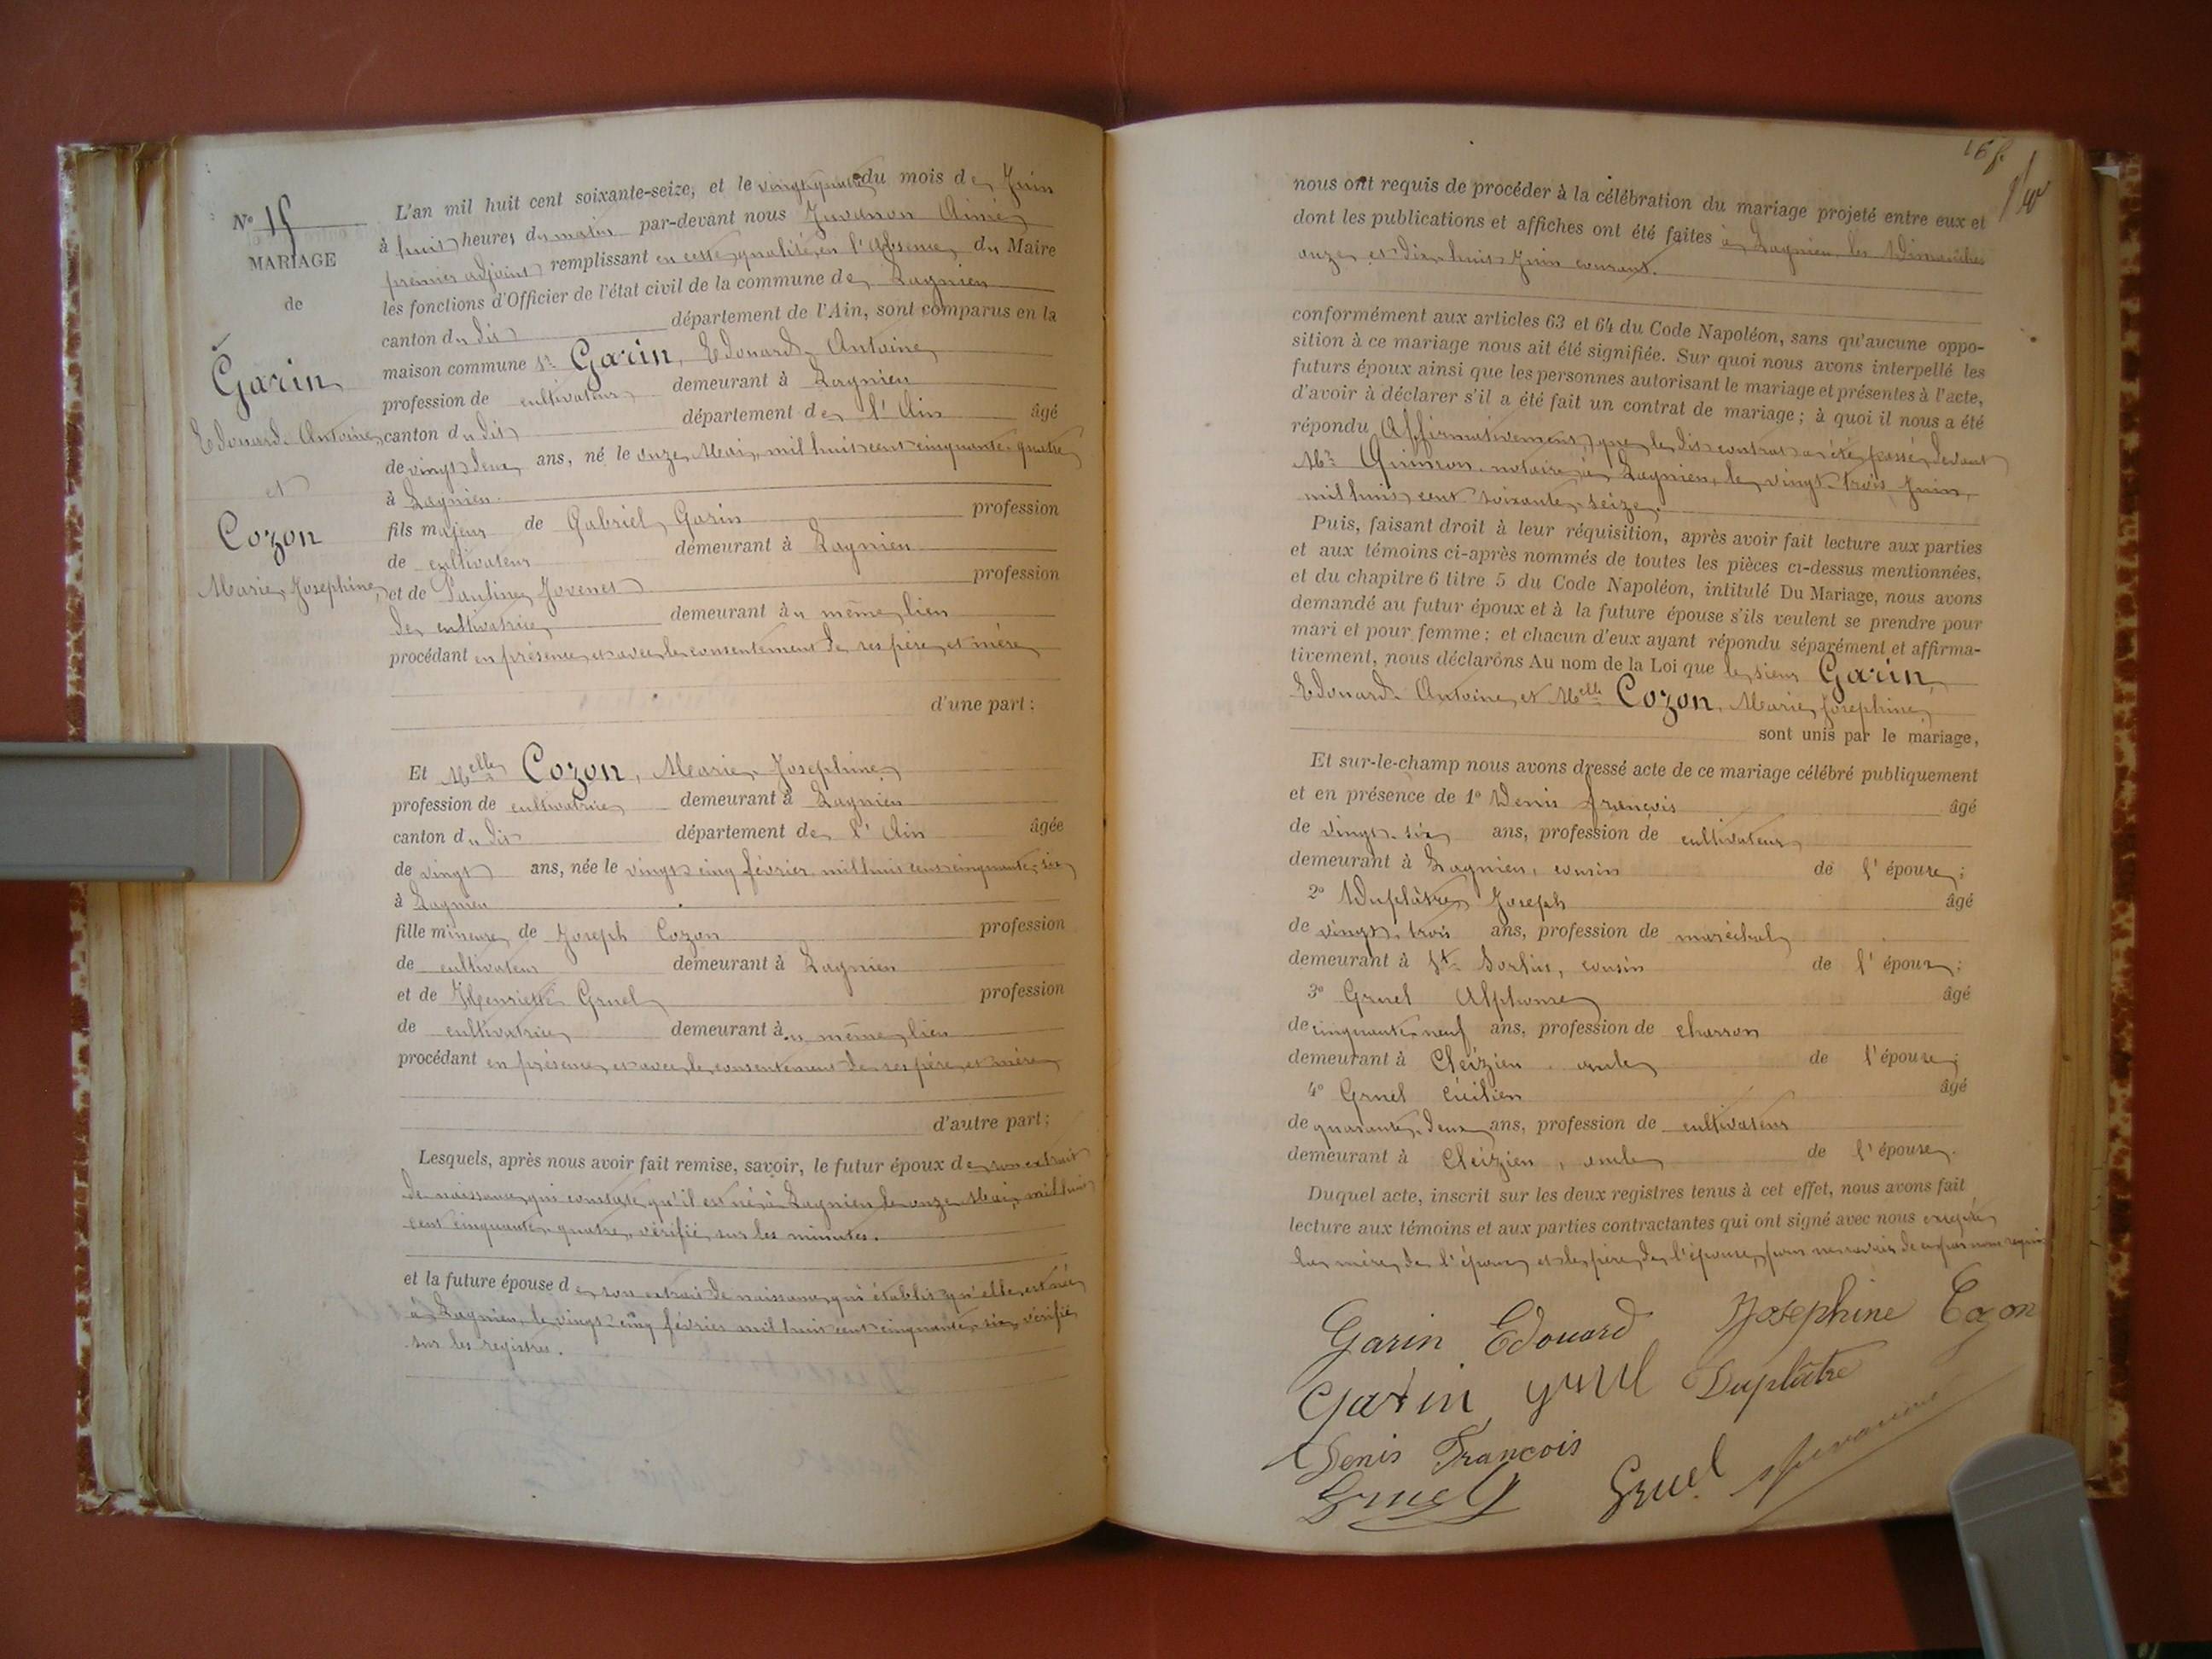 N° 15
MARIAGE
de
Garin
Edouard Antoine
et
Cozon
Marie Josephine
L'an mil huit cent soixante-seize, et le vingt quatre du mois de Juin
à huit heures du matin par-devant nous Juvanon Aimé
premier adjoint remplissant en cette qualité, en l'Absence du Maire
les fonctions d'Officier de l'état civil de la commune de Lagnieu
canton du dit département de l'Ain, sont comparus en la
maison commune Sr Garin, Edouard Antoine
profession de cultivateur demeurant à Lagnieu
canton du dit département de l'Ain âgé
de vingt deux ans, né le onze Mai, mil huit cent cinquante quatre
à Lagnieu.
fils majeur de Gabriel Garin profession
de cultivateur demeurant à Lagnieu
et de Pauline Jovenet profession
de cultivatrice demeurant àu même lieu
procédant en présence et avec le consentement de ses père et mère
d'une part :
Et Melle Cozon, Marie Josephine
profession de cultivatrice demeurant à Lagnieu
canton du dit département de l'Ain âgée
de vingt ans, née le vingt cinq février mil huit cent cinquante six
à Lagnieu
fille mineure de Joseph Cozon profession
de cultivateur demeurant à Lagnieu
et de Henriette Gruel profession
de cultivatrice demeurant àu même lieu
procédant en présence et avec le consentement de ses père et mère
d'autre part ;
Lesquels, après nous avoir fait remise, savoir, le futur époux de son extrait
de naissance qui constate qu'il est né à Lagnieu le onze Mai, mil huit
cent cinquante quatre, vérifié sur les minutes.
et la future épouse de son extrait de naissance qui établit qu'elle est née
à Lagnieu, le vingt cinq février mil huit cent cinquante six, vérifié
sur les registres.
nous ont requis de procéder à la célébration du mariage projeté entre eux et
dont les publications et affiches ont été faites à Lagnieu les Dimanches
onze et dix huit Juin courant.
conformément aux articles 63 et 64 du Code Napoléon, sans qu'aucune oppo-
sition à ce mariage nous ait été signifiée. Sur quoi nous avons interpellé les
futurs époux ainsi que les personnes autorisant le mariage et présentes à l'acte,
d'avoir à déclarer s'il a été fait un contrat de mariage ; à quoi il nous a été
répondu Affirmativement, que le dit contrat a été passé devant
Me Quinson notaire à Lagnieu, le vingt trois Juin,
mil huit cent soixante seize.
Puis, faisant droit à leur réquisition, après avoir fait lecture aux parties
et aux témoins ci-après nommés de toutes les pièces ci-dessus mentionnées,
et du chapitre 6 titre 5 du Code Napoléon, intitulé Du Mariage, nous avons
demandé au futur époux et à la future épouse s'ils veulent se prendre pour
mari et pour femme : et chacun d'eux ayant répondu séparément et affirma-
tivement, nous déclarons Au nom de la Loi que le sieur Garin,
Edouard Antoine et Melle Cozon, Marie Josephine
sont unis par le mariage,
Et sur-le-champ nous avons dressé acte de ce mariage célébré publiquement
et en présence de 1° Denis françois âgé
de vingt six ans, profession de cultivateur
demeurant à Lagnieu, cousin de l'épouse ;
2° Duplâtre Joseph âgé
de vingt trois ans, profession de maréchal
demeurant à St Sorlin, cousin de l'époux ;
3° Gruel Alphonse âgé
de cinquante neuf ans, profession de charron
demeurant à Cleizieu oncle de l'épouse ;
4° Gruel Cécilien âgé
de quarante deux ans, profession de cultivateur
demeurant à Cleizieu, oncle de l'épouse.
Duquel acte, inscrit sur les deux registres tenus à cet effet, nous avons fait
lecture aux témoins et aux parties contractantes qui ont signé avec nous excepté
la mère de l'époux et le père de l'épouse, pour ne savoir de ce par nous requis
Garin Edouard Josephine Cozon
Garin gruel Duplâtre
Denis François
Gruel Gruel Juvanon